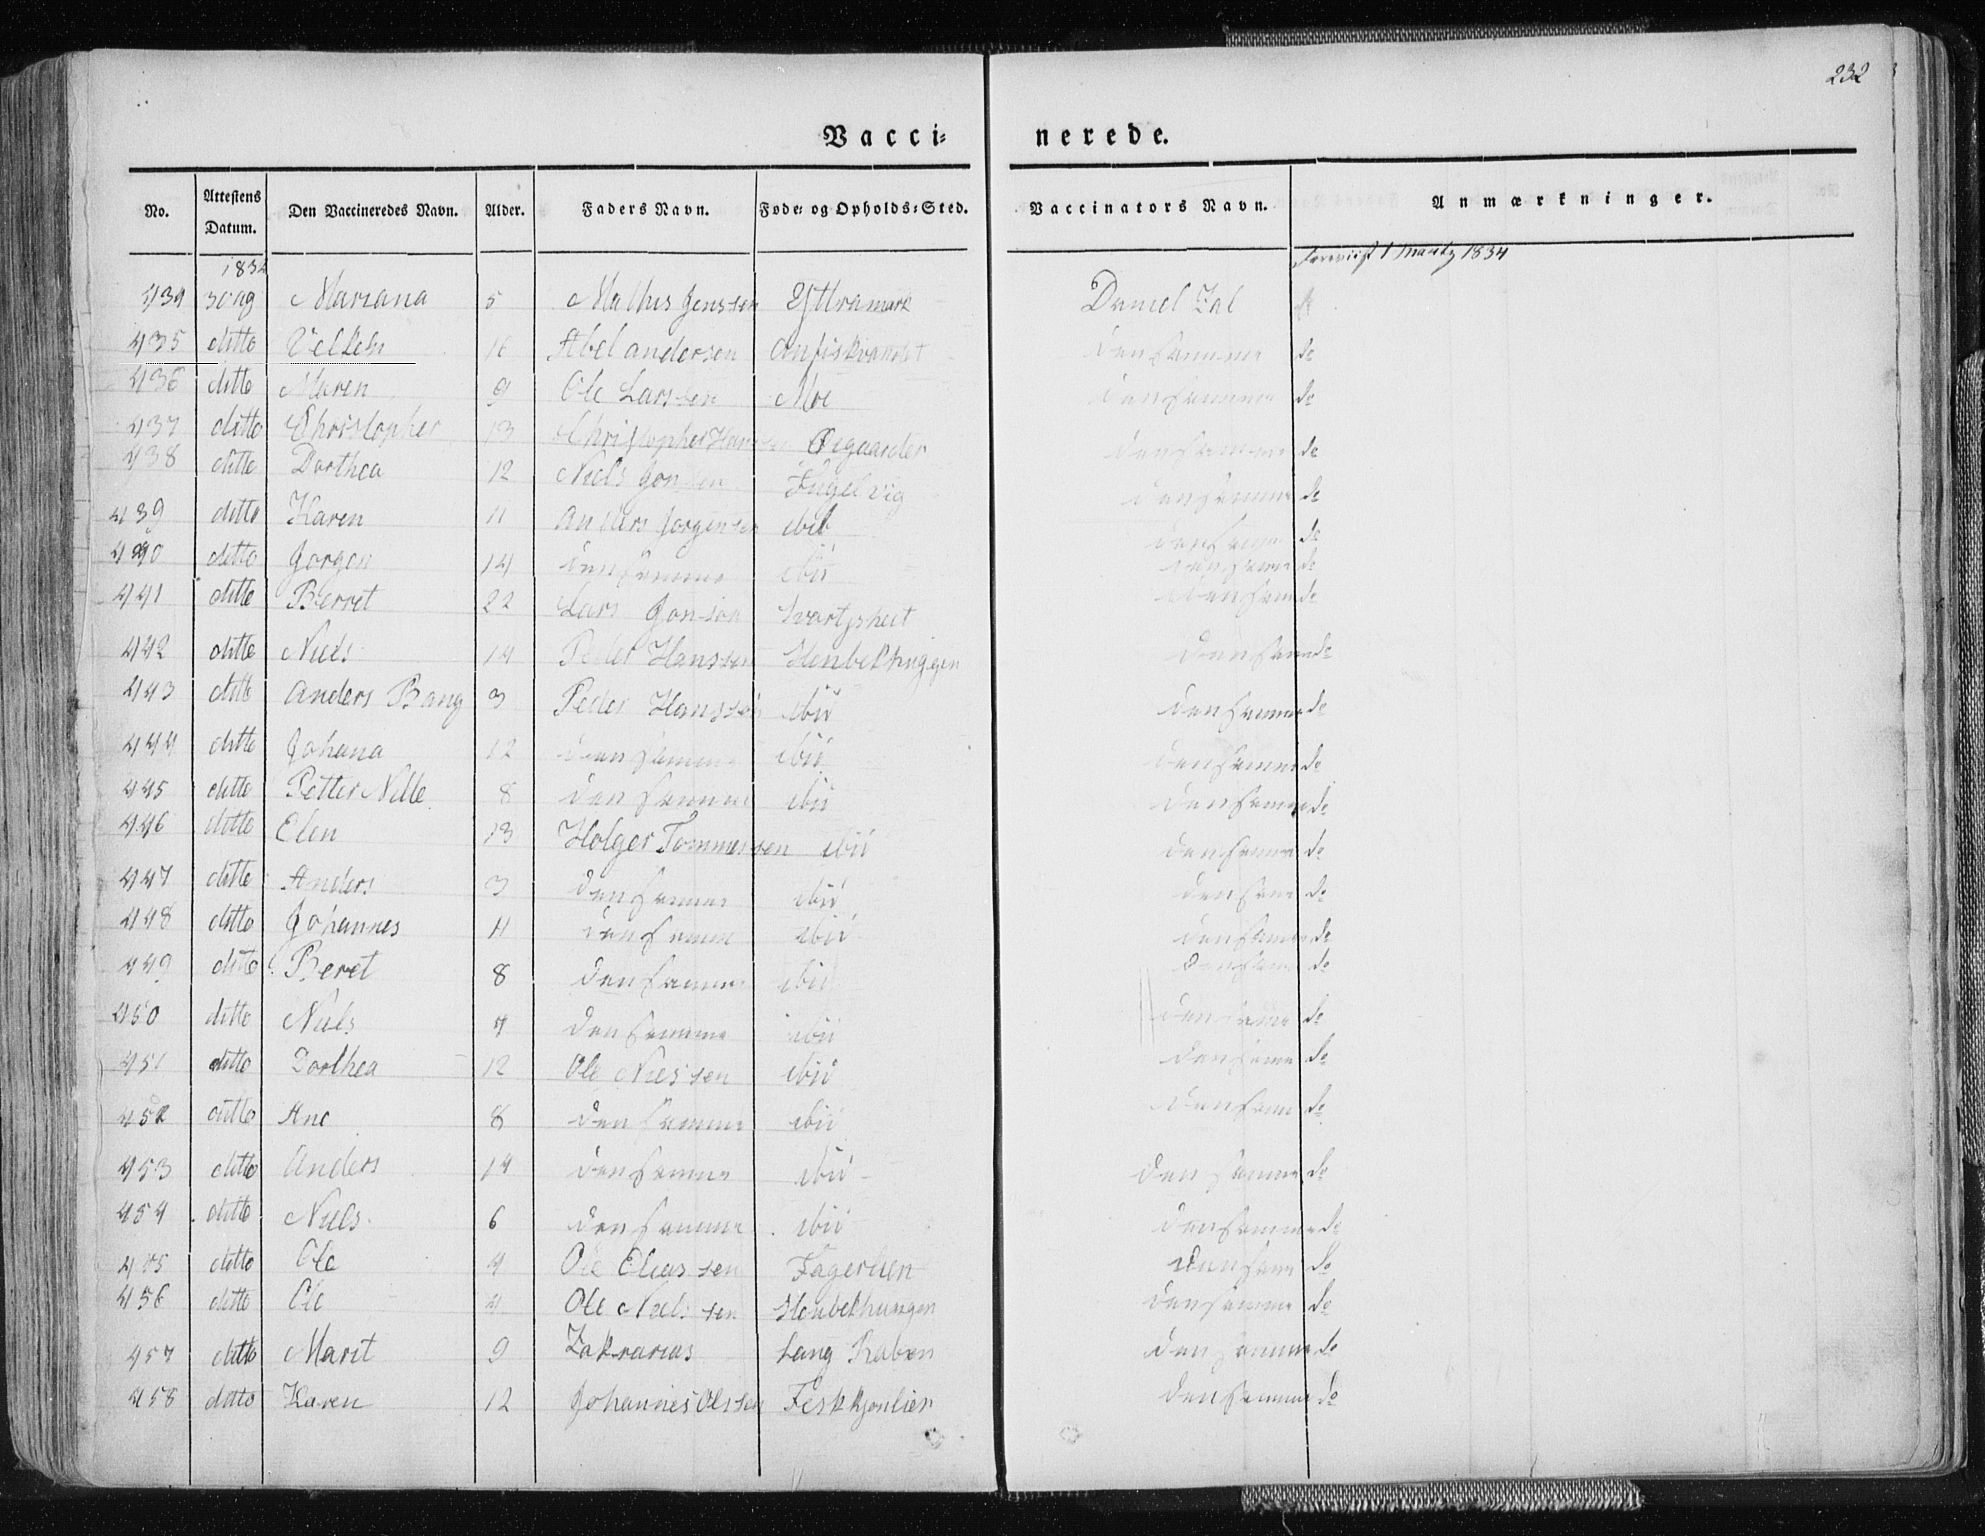 232
Vacci- nerede.
No. Attestens Datum. Den Vaccineredes Navn. Alder. Faders Navn. Føde- og Opholds-Sted. Vaccinators Navn. Anmærkninger.
1834 1 Martz 1834
434 Mariana 5 Mathis Jenssen Daniel
435 ditto 16 Abel andersen den samme do
436 ditto Maren 9 Ole Larssen Moe den samme do
437 ditto Christopher 13 Christopher Øegaarder den samme do
438 ditto Dorthea 12 Niels Jonssen Fugelvig den samme do
439 ditto Karen 11 Anders Jorgensen den same do
440 ditto Jorgen 14 den samme ibii den same do
441 ditto Berret 22 Lars Jonson den sam do
442 ditto Niels 14 Peder Hanssen den same do
443 ditto Anders Bang 3 Peder Hanssen ibii den samme do
444 ditto Johana 12 den samme ibii den samme do
445 ditto Petter Nille 8 den samme ibii den samme do
446 ditto Elen 13 Holger Tommessen ibii den samme do
447 ditto Anders 3 den samme ibii den same do
448 ditto Johannes 11 den samme ibii den samme do
449 ditto Beret 8 den samme ibii den same do
450 ditto Niels den samme ibii den same do
451 ditto Dorthea 12 Ole Nielssen ibii den same do
452 ditto Ane 8 den samme ibii den same do
453 ditto Anders 14 den samme ibii den samme do
454 ditto Niels 6 den samme ibii den samme do
455 ditto Ole 4 Ole Eliassen Fagerlien den same do
456 ditto Ole 4 Ole Nielssen den samme do
457 ditto Marit 9 Zakrarias Lang den samme do
458 ditto Karen 12 Johannes Olssen den samme do